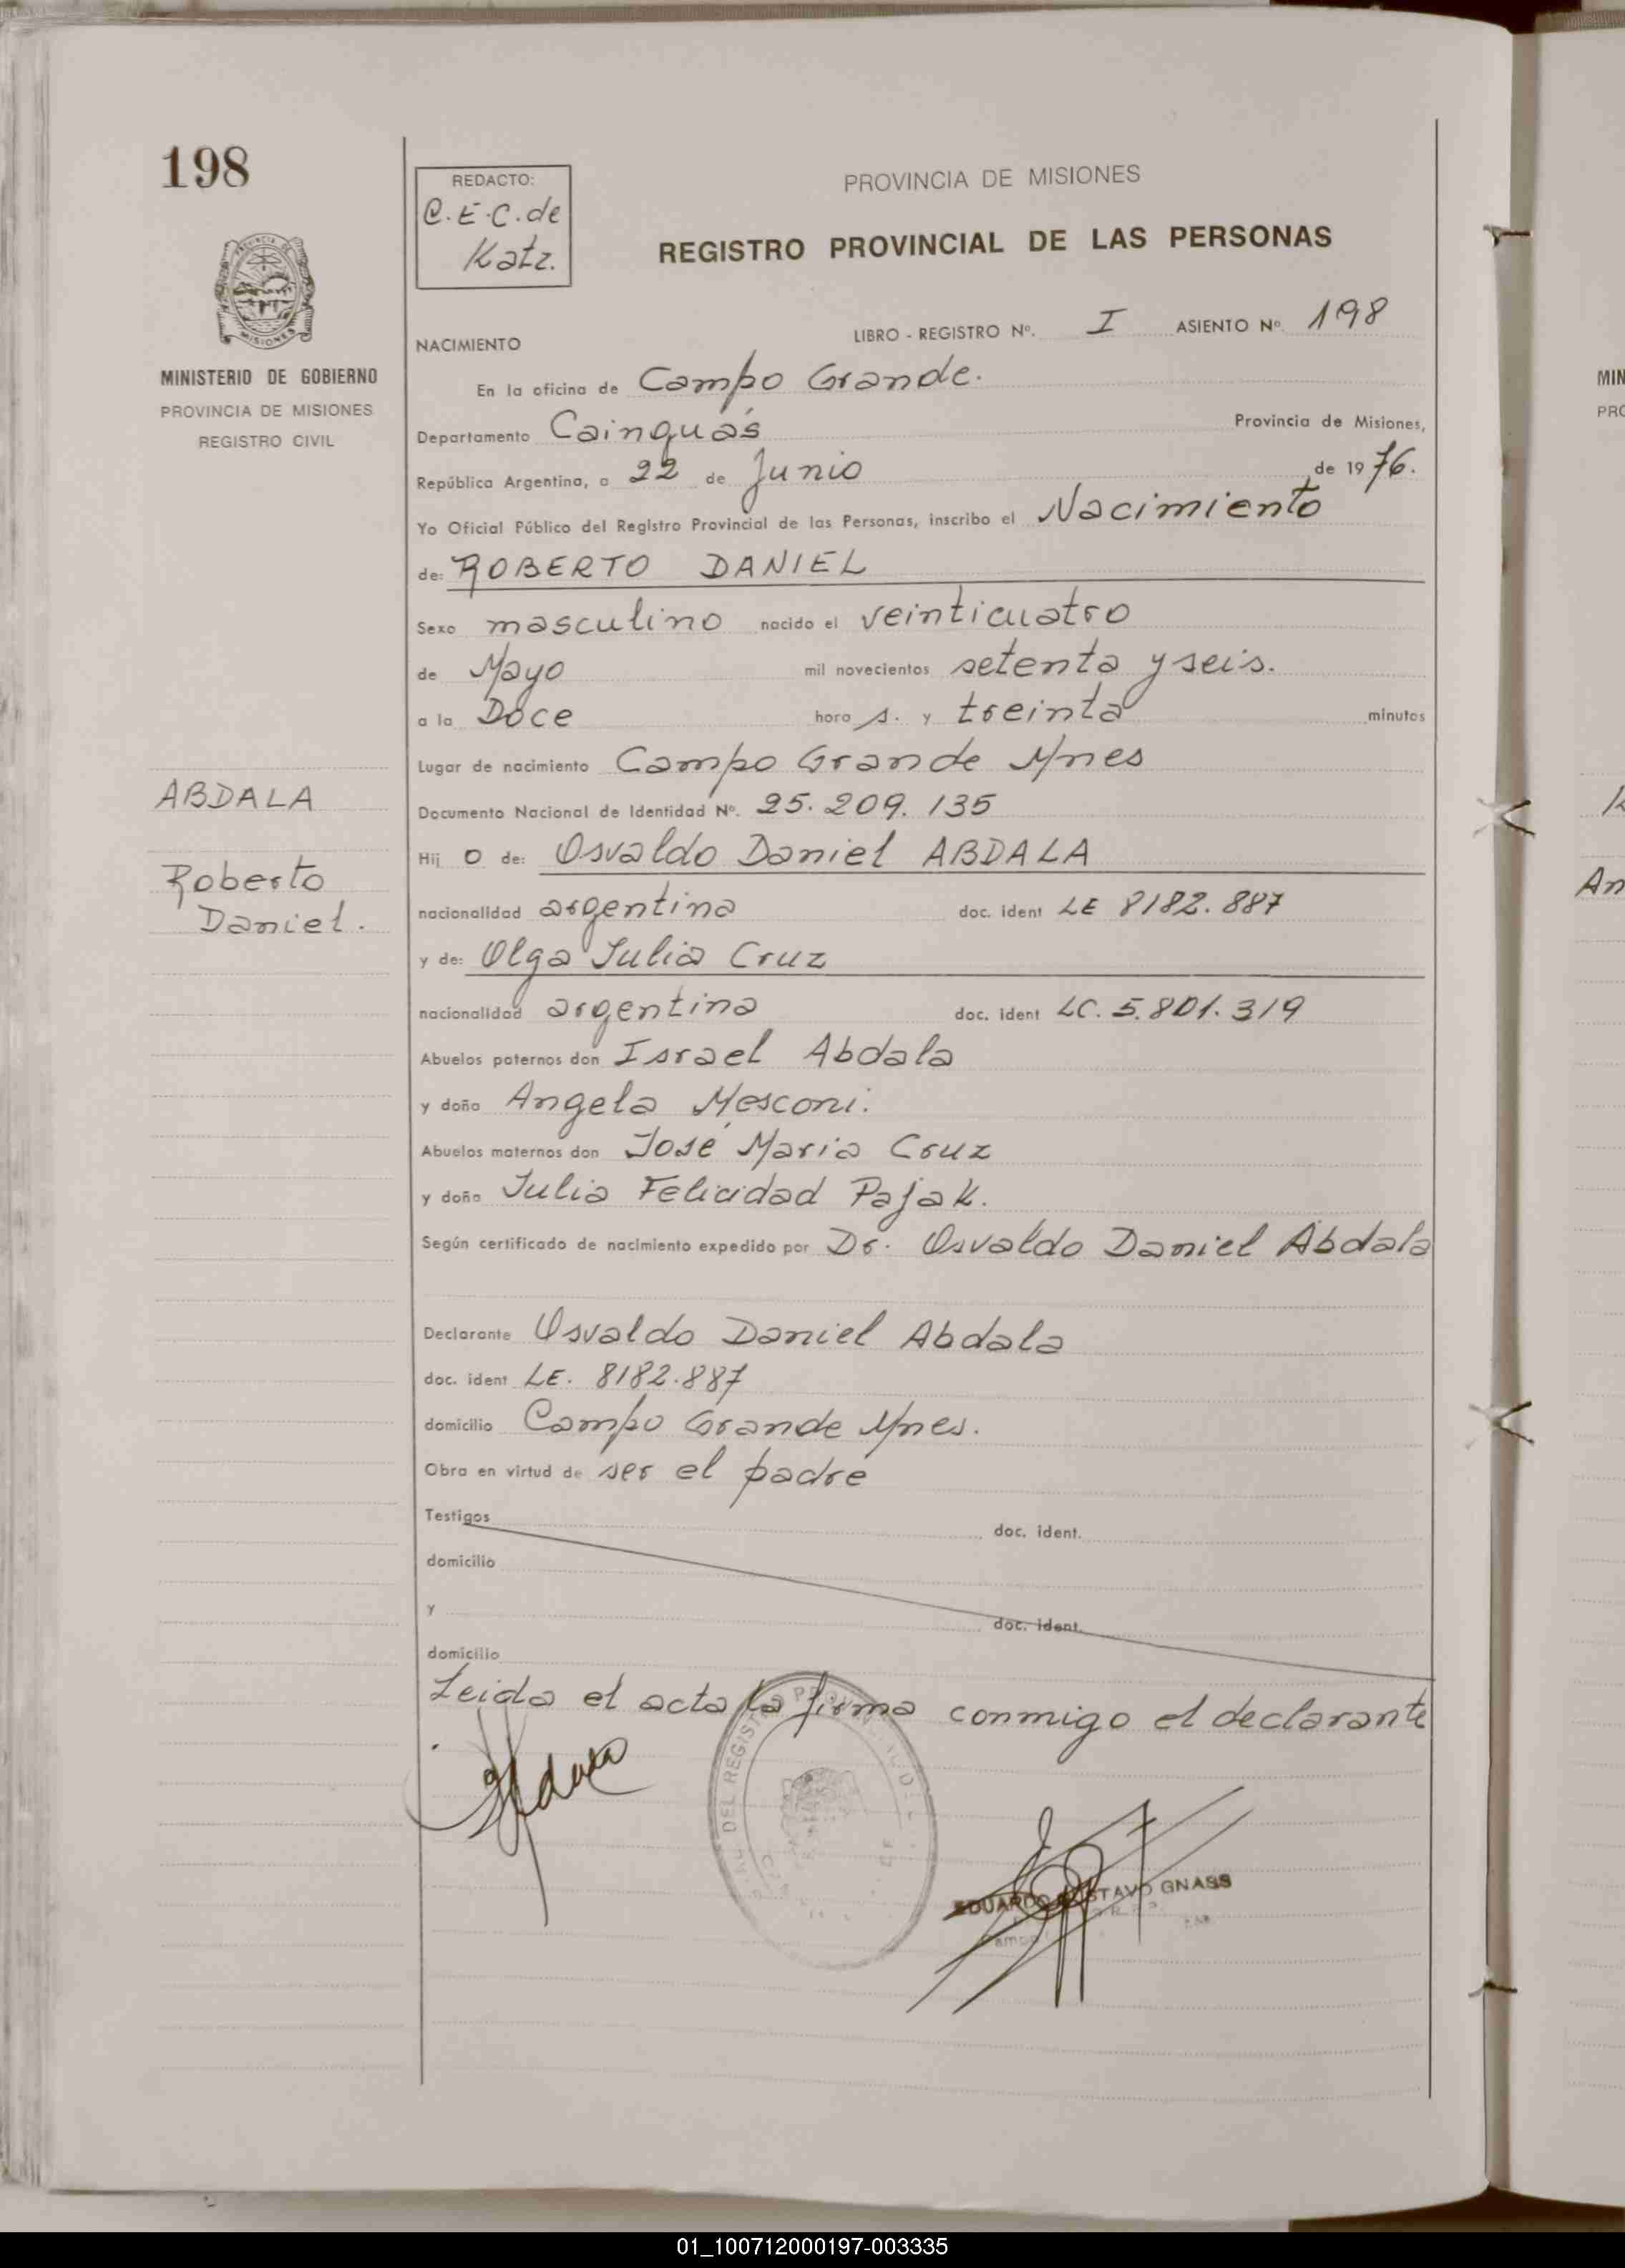 198
REDACTO:
C.E.C.de
Katz.
PROVINCIA DE MISIONES
REGISTRO PROVINCIAL DE LAS PERSONAS
MISIONES
MINISTERIO DE GOBIERNO
PROVINCIA DE MISIONES
REGISTRO CIVIL
NACIMIENTO LIBRO - REGISTRO Nº. I ASIENTO Nº 198
En la oficina de Campo Grande.
Departamento Cainguás Provincia de Misiones,
República Argentina, a 22 de Junio de 1976.
Yo Oficial Público del Registro Provincial de las Personas, inscribo el Nacimiento
de: ROBERTO DANIEL
Sexo masculino nacido el veinticuatro
de Mayo mil novecientos setenta y seis.
a la Doce hora s. y treinta minutos
Lugar de nacimiento Campo Grande Mnes
Documento Nacional de Identidad Nº. 25.209.135
Hij o de: Osvaldo Daniel ABDALA
nacionalidad argentina doc. ident LE 8182.887
y de: Olga Julia Cruz
nacionalidad argentina doc. ident LC. 5.801.319
Abuelos paternos don Israel Abdala
y doña Angela Mesconi.
Abuelos maternos don José Maria Cruz
y doña Julia Felicidad Pajak.
Según certificado de nacimiento expedido por Dr. Osvaldo Daniel Abdala
Declarante Osvaldo Daniel Abdala
doc. ident LE. 8182.887
domicilio Campo Grande Mnes.
Obra en virtud de ser el padre
Testigos doc. ident.
domicilio
y doc. ident.
domicilio
Leida el acta la firma conmigo el declarante
DEL REGISTRO
EDUARDO GUSTAVO GNASS
ABDALA
Roberto
Daniel.
MIN
PRO
An
01_100712000197-003335